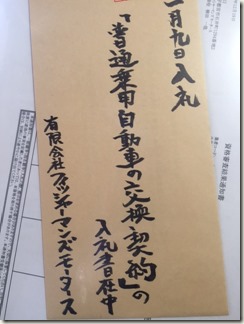 一月九日入札
「普通乗用自動車の交換契約」の
入札書在中
有限会社フィッシャーマンズモータース
資格審査結果通知書